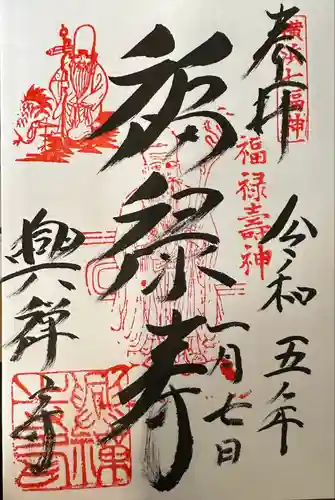 奉拝
横浜七福神
福禄壽神
令和五年
一月七日
福禄寿
興禅寺